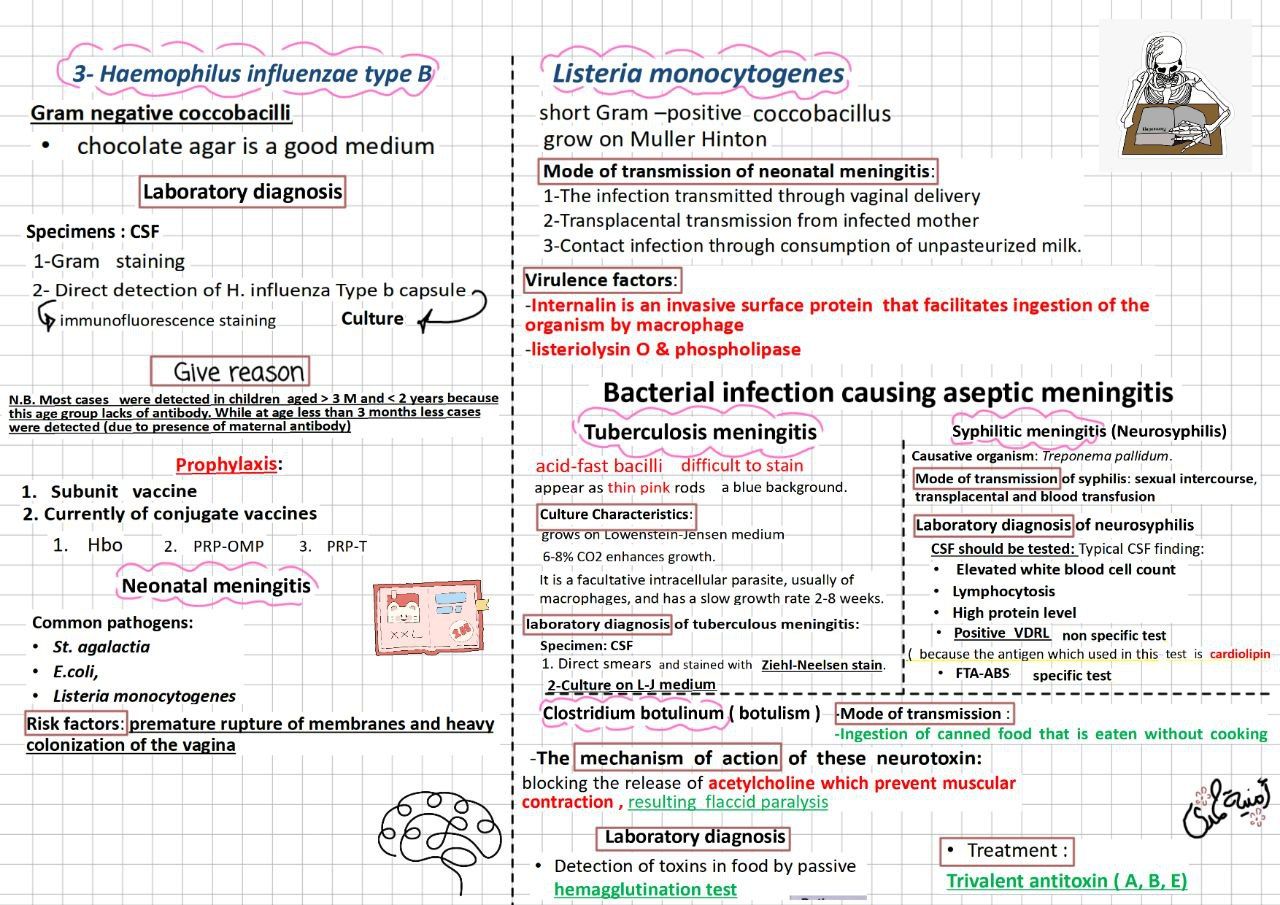 3- Haemophilus influenzae type B
Gram negative coccobacilli
• chocolate agar is a good medium
Laboratory diagnosis
Specimens : CSF
1-Gram staining
2- Direct detection of H. influenza Type b capsule
immunofluorescence staining Culture
Give reason
N.B. Most cases were detected in children aged > 3 M and < 2 years because
this age group lacks of antibody. While at age less than 3 months less cases
were detected (due to presence of maternal antibody)
Prophylaxis:
1. Subunit vaccine
2. Currently of conjugate vaccines
1. Hbo 2. PRP-OMP 3. PRP-T
Neonatal meningitis
Common pathogens:
• St. agalactia
• E.coli,
• Listeria monocytogenes
Risk factors: premature rupture of membranes and heavy
colonization of the vagina
Listeria monocytogenes
short Gram –positive coccobacillus
grow on Muller Hinton
Mode of transmission of neonatal meningitis:
1-The infection transmitted through vaginal delivery
2-Transplacental transmission from infected mother
3-Contact infection through consumption of unpasteurized milk.
Virulence factors:
-Internalin is an invasive surface protein that facilitates ingestion of the
organism by macrophage
-listeriolysin O & phospholipase
Bacterial infection causing aseptic meningitis
Tuberculosis meningitis
acid-fast bacilli difficult to stain
appear as thin pink rods a blue background.
Culture Characteristics:
grows on Lowenstein-Jensen medium
6-8% CO2 enhances growth.
It is a facultative intracellular parasite, usually of
macrophages, and has a slow growth rate 2-8 weeks.
laboratory diagnosis of tuberculous meningitis:
Specimen: CSF
1. Direct smears and stained with Ziehl-Neelsen stain.
2-Culture on L-J medium
Syphilitic meningitis (Neurosyphilis)
Causative organism: Treponema pallidum.
Mode of transmission of syphilis: sexual intercourse,
transplacental and blood transfusion
Laboratory diagnosis of neurosyphilis
CSF should be tested: Typical CSF finding:
• Elevated white blood cell count
• Lymphocytosis
• High protein level
• Positive VDRL non specific test
( because the antigen which used in this test is cardiolipin
• FTA-ABS specific test
Clostridium botulinum ( botulism )
-Mode of transmission :
-Ingestion of canned food that is eaten without cooking
-The mechanism of action of these neurotoxin:
blocking the release of acetylcholine which prevent muscular
contraction , resulting flaccid paralysis
Laboratory diagnosis
• Detection of toxins in food by passive
hemagglutination test
• Treatment :
Trivalent antitoxin ( A, B, E)